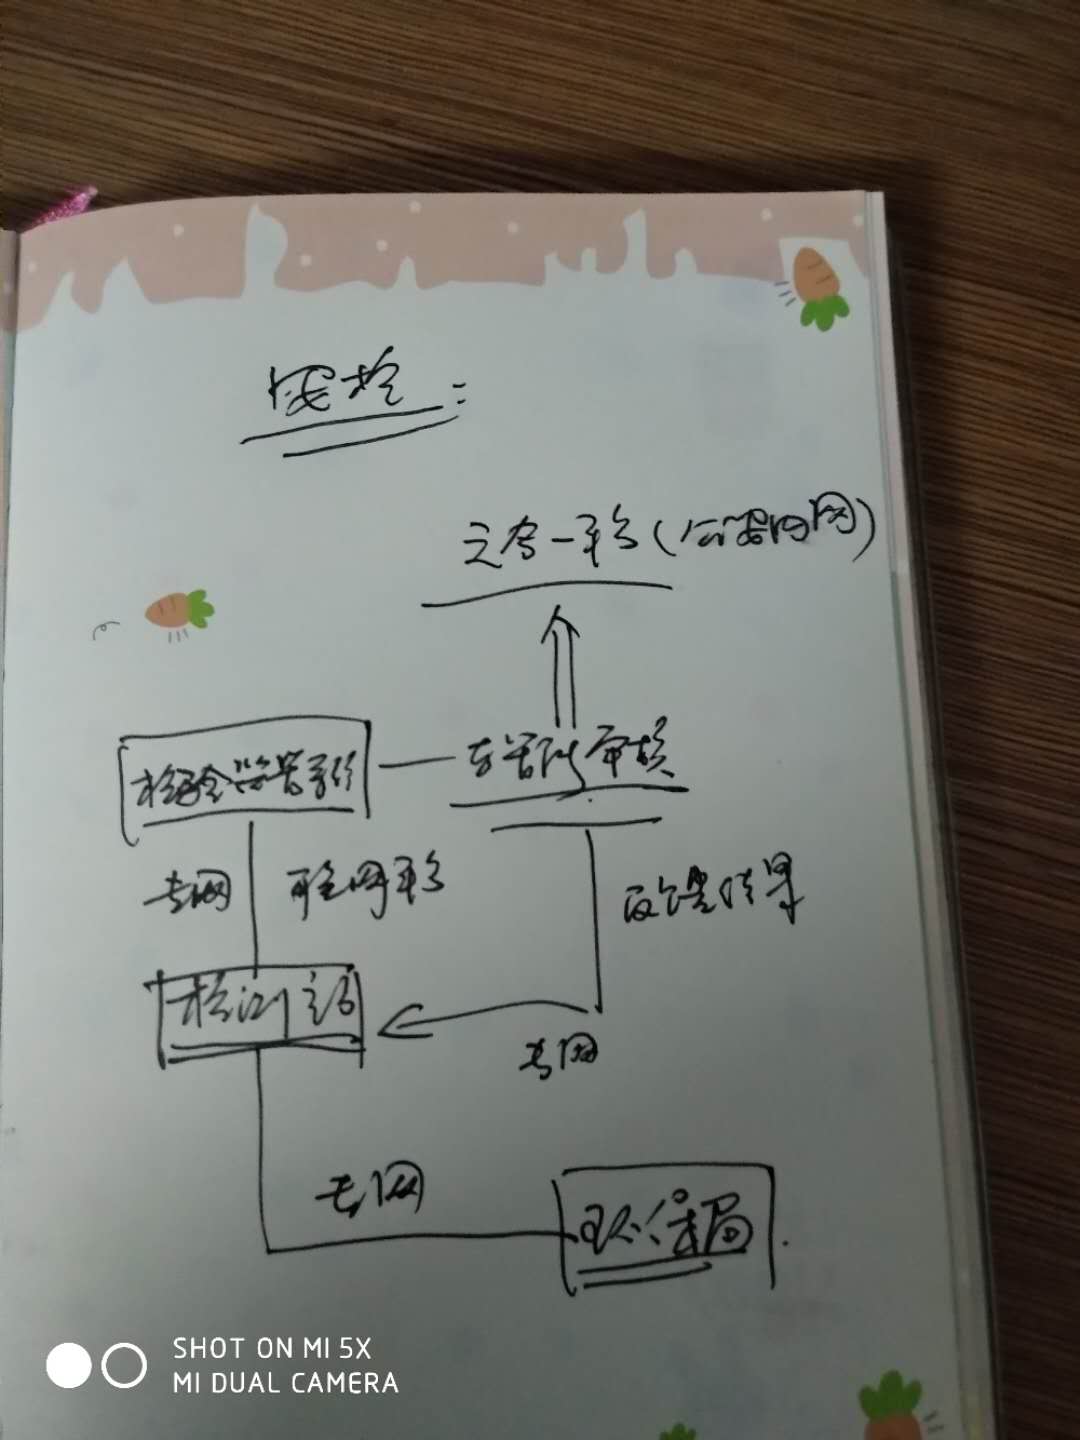 六合一平台（公安内网）
检验监管系统 车管所审核
专网 联网平台 反馈结果
检测站
专网
专网
环保局
SHOT ON MI 5X
MI DUAL CAMERA